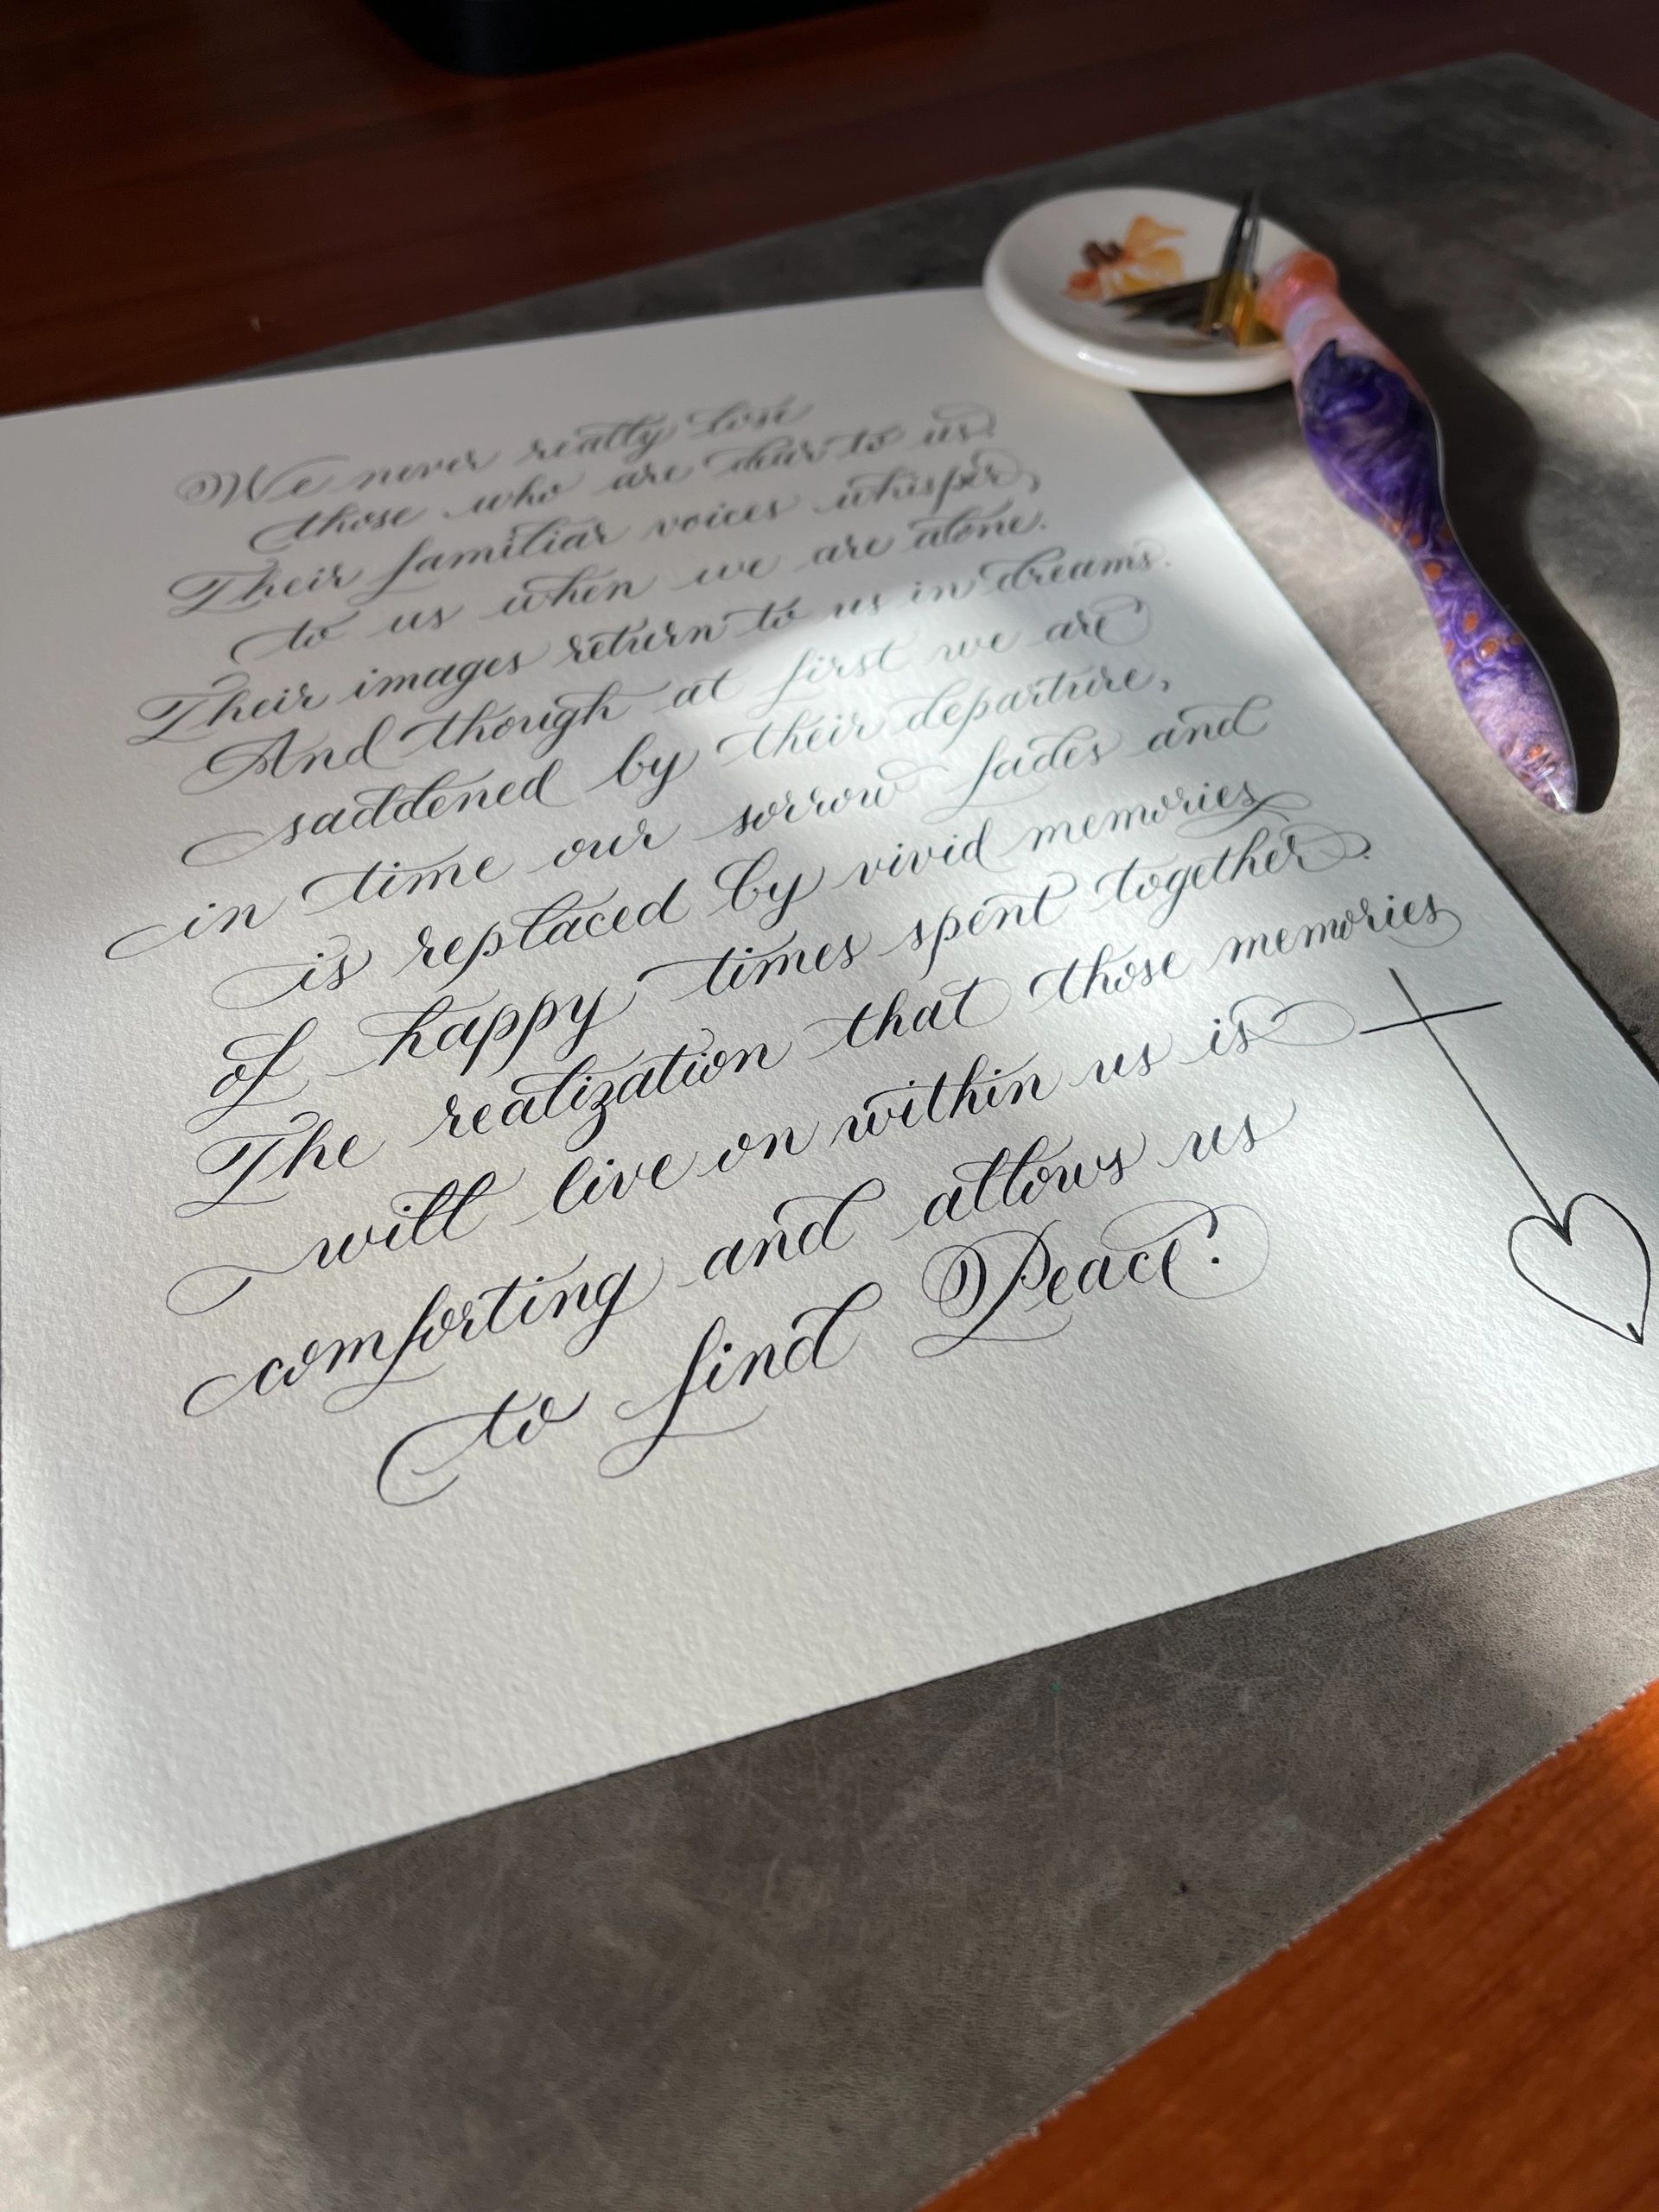 We never really lose
those who are dear to us.
Their familiar voices whisper,
to us when we are alone.
Their images return to us in dreams.
And though at first we are
saddened by their departure,
in time our sorrow fades and
is replaced by vivid memories
of happy times spent together.
The realization that those memories
will live on within us is
comforting and allows us
to find Peace.